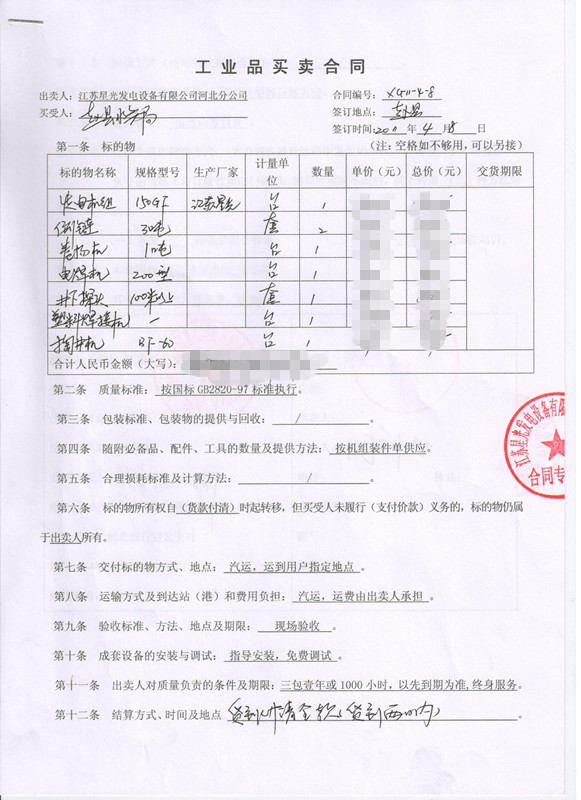 工业品买卖合同
出卖人：江苏星光发电设备有限公司河北分公司 合同编号：XG11-4-8
买受人：赵县水务局 签订地点：赵县
签订时间：2011年4月8日
第一条 标的物 （注：空格如不够用，可以另接）
标的物名称 规格型号 生产厂家 计量单位 数量 单价（元） 总价（元） 交货期限
发电机组 150GF 江苏星光 台 1
倒链 30吨 套 2
卷扬机 10吨 台 1
电焊机 200型 台 1
井下探头 100米以上 套 1
塑料焊接机 - 台 1
掏井机 BF-60 台 1
合计人民币金额（大写）：
第二条 质量标准：按国标 GB2820-97 标准执行。
第三条 包装标准、包装物的提供与回收： / 。
第四条 随附必备品、配件、工具的数量及提供方法：按机组装件单供应。
第五条 合理损耗标准及计算方法： / 。
第六条 标的物所有权自（货款付清）时起转移，但买受人未履行（支付价款）义务的，标的物仍属
于出卖人所有。
第七条 交付标的物方式、地点：汽运，运到用户指定地点。
第八条 运输方式及到达站（港）和费用负担：汽运，运费由出卖人承担。
第九条 验收标准、方法、地点及期限：现场验收。
第十条 成套设备的安装与调试：指导安装，免费调试。
第十一条 出卖人对质量负责的条件及期限：三包壹年或 1000 小时，以先到期为准,终身服务。
第十二条 结算方式、时间及地点 货到付清全款（货到两月内）。
江苏星光发电设备有限
合同专